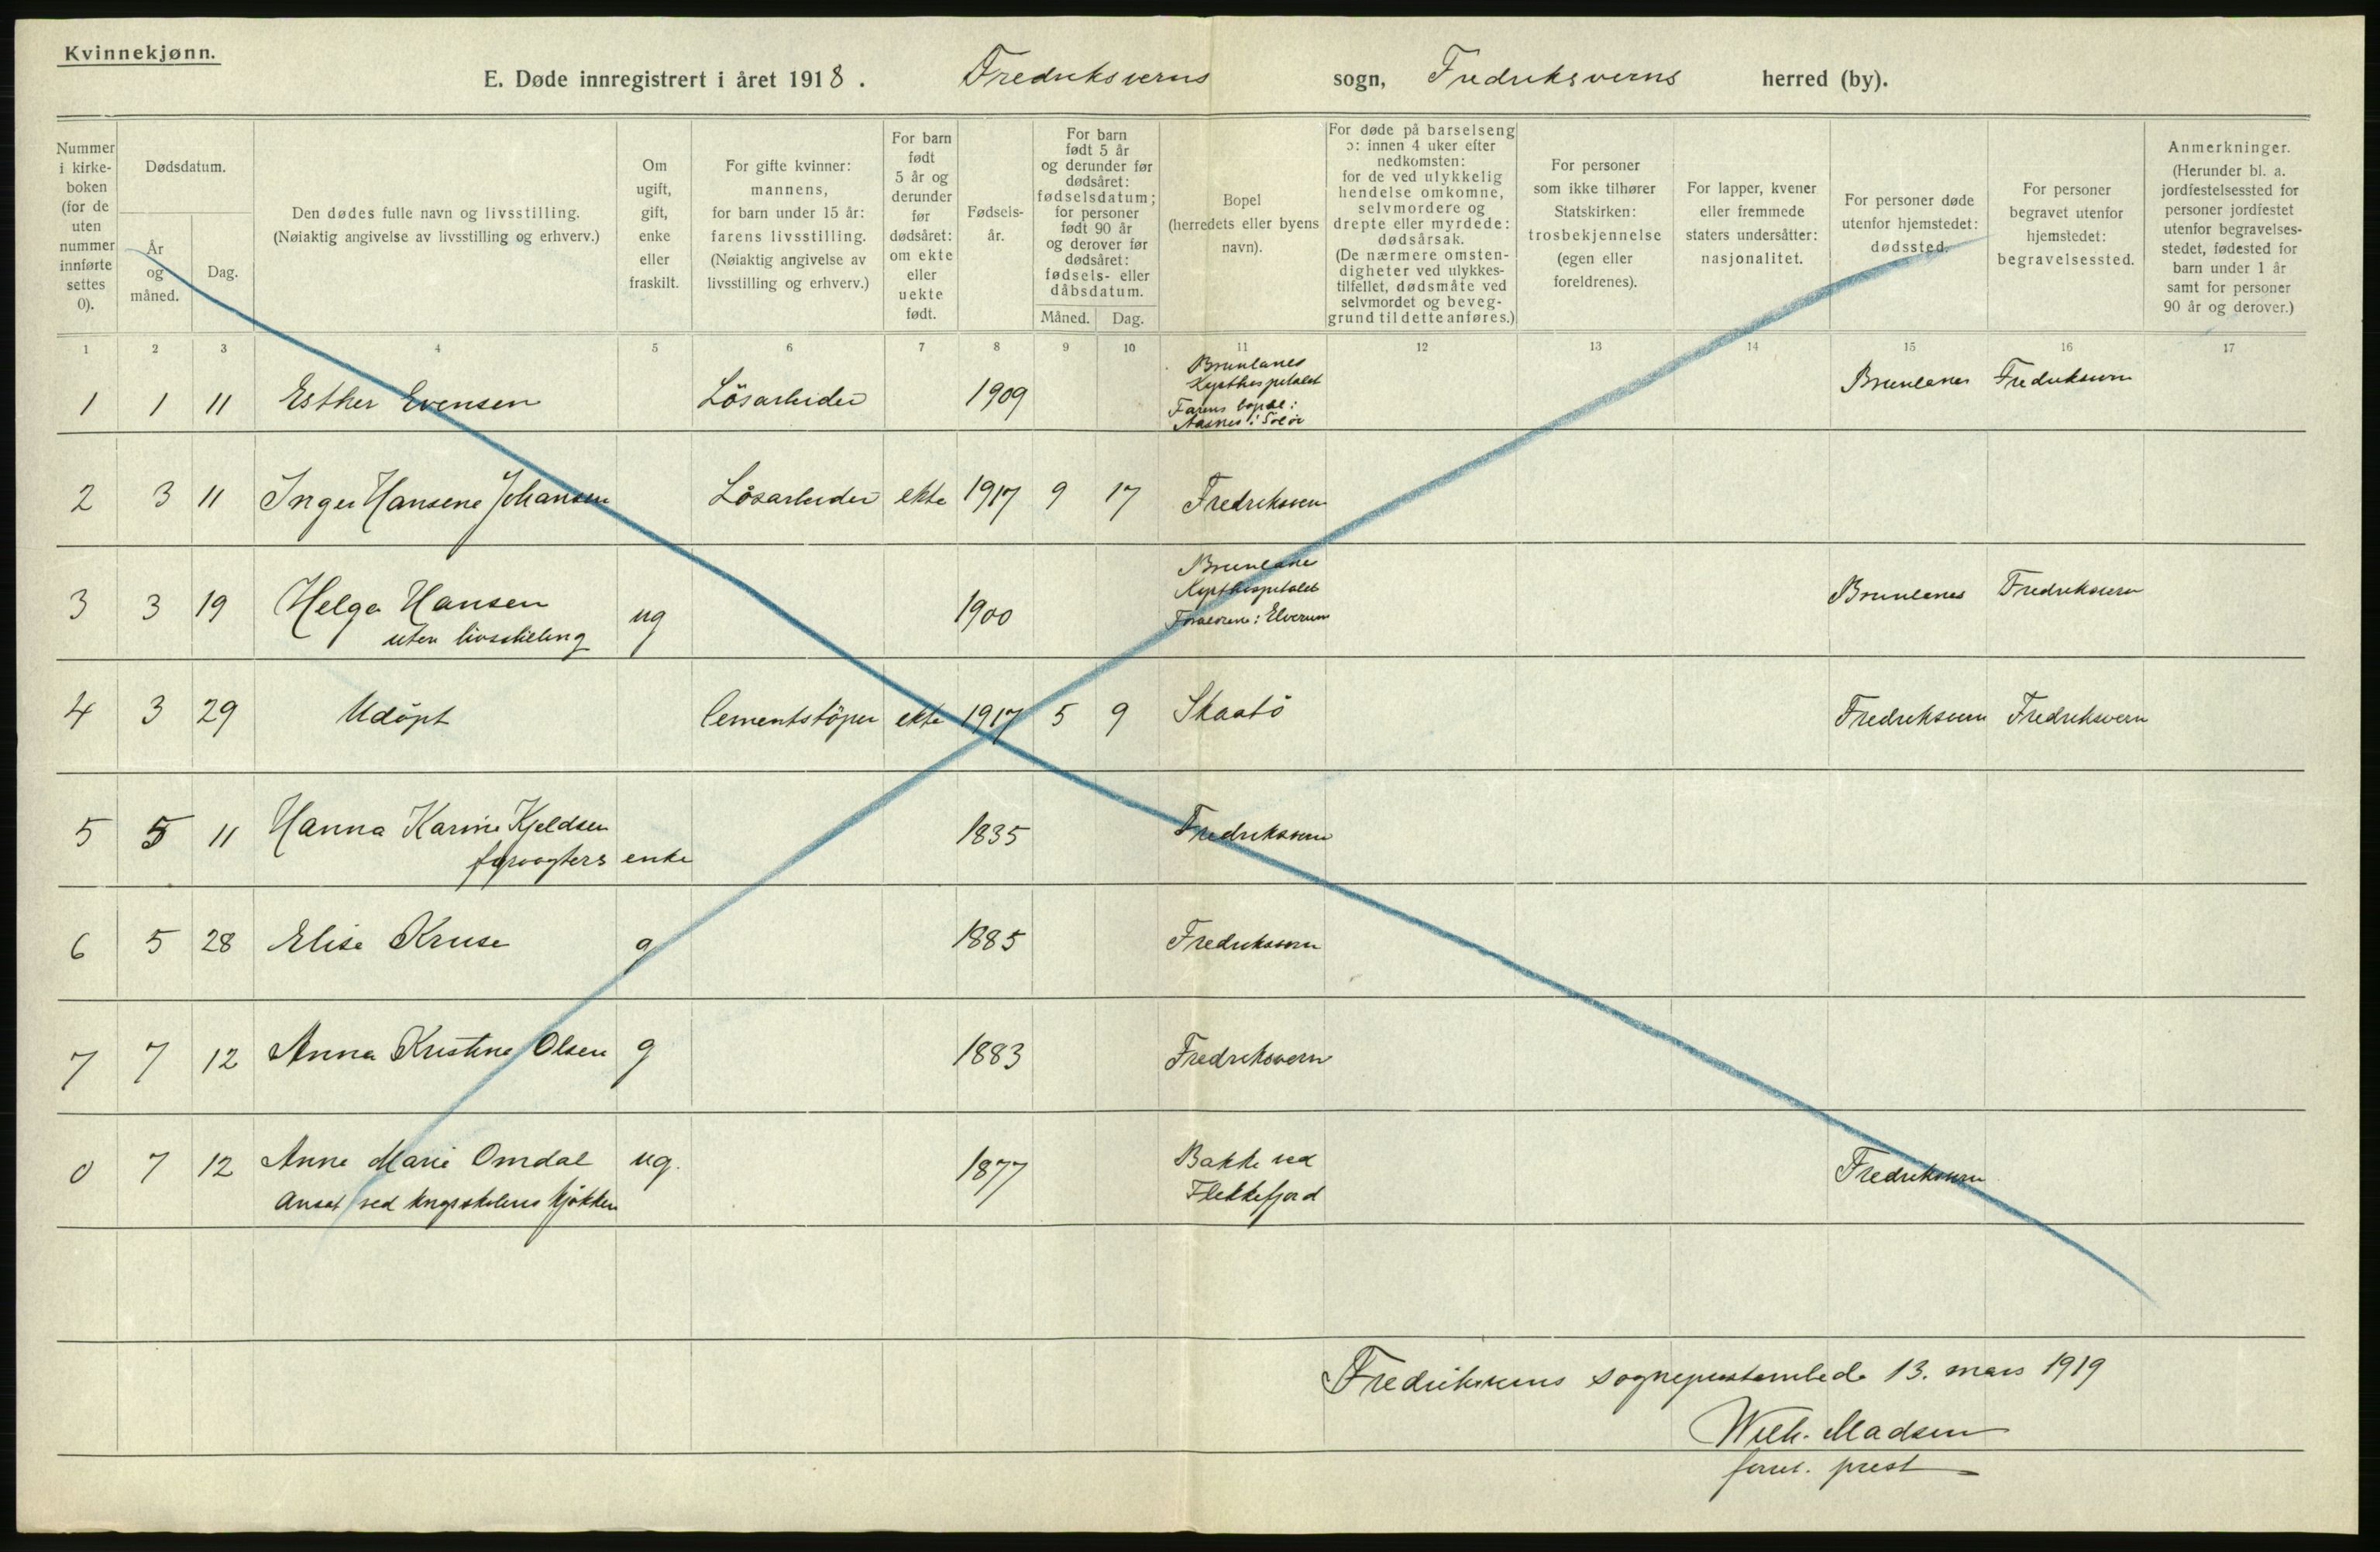 Kvinnekjønn.
E. Døde innregistrert i året 1918. Fredriksverns sogn, Fredriksverns herred (by).
Nummer i kirke-boken (for de uten nummer innførte settes 0).
Dødsdatum.
År og måned.
Dag.
Den dødes fulle navn og livsstilling. (Nøiaktig angivelse av livsstilling og erhverv.)
Om ugift, gift, enke eller fraskilt.
For gifte kvinner: mannens, for barn under 15 år: farens livsstilling. (Nøiaktig angivelse av livsstilling og erhverv.)
For barn født 5 år og derunder før dødsåret: om ekte eller uekte født.
Fødsels-år.
For barn født 5 år og derunder før dødsåret: fødselsdatum; for personer født 90 år og derover før dødsåret: fødsels- eller dåbsdatum.
Måned. Dag.
Bopel (herredets eller byens navn).
For døde på barselseng ɔ: innen 4 uker efter nedkomsten: for de ved ulykkelig hendelse omkomne, selvmordere og drepte eller myrdede: dødsårsak. (De nærmere omsten-digheter ved ulykkes-tilfellet, dødsmåte ved selvmordet og beveg-grund til dette anføres.)
For personer som ikke tilhører Statskirken: trosbekjennelse (egen eller foreldrenes).
For lapper, kvener eller fremmede staters undersåtter: nasjonalitet.
For personer døde utenfor hjemstedet: dødssted.
For personer begravet utenfor hjemstedet: begravelsessted.
Anmerkninger. (Herunder bl. a. jordfestelsessted for personer jordfestet utenfor begravelses-stedet, fødested for barn under 1 år samt for personer 90 år og derover.)
1 2 3 4 5 6 7 8 9 10 11 12 13 14 15 16 17
1 1 11 Esther Evensen Lösarbeider 1909 Brunlanes Kysthospitalet Farens bopæl: Aasnes i Solör Brunlanes Fredriksvern
2 3 11 Inger Hansene Johansen Lösarbeider ekte 1917 9 17 Fredriksvern
3 3 19 Helga Hansen ug 1900 Brunlanes Kysthospitalet : Elverum Brunlanes Fredriksvern
uten livsstilling
4 3 29 Udöpt Cementstöper ekte 1917 5 9 Skaatö Fredriksvern Fredriksvern
5 5 11 Hanna Karine Kjeldsen 1835 Fredriksvern
fyrvogters enke
6 5 28 Elise Kruse g 1885 Fredriksvern
7 7 12 Anna Kristine Olsen g 1883 Fredriksvern
0 7 12 Anne Marie Omdal ug. 1877 Bakke ved Flekkefjord Fredriksvern
Ansat ved krigsskolens kjökken
Fredriksverns sogneprestembede 13. mars 1919
Wilh. Madsen
prest